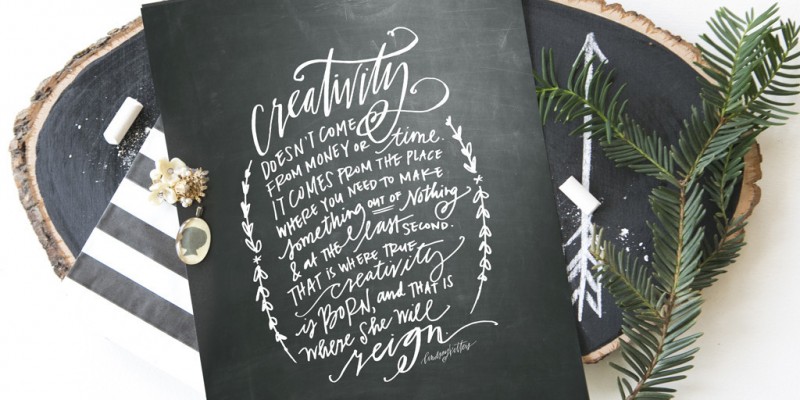 Creativity
DOESN'T COME
FROM MONEY OR time.
IT COMES FROM THE PLACE
WHERE YOU NEED TO MAKE
Something OUT OF Nothing
& AT THE least SECOND.
THAT IS WHERE TRUE
creativity
is BORN, and THAT IS
Where She Will
reign